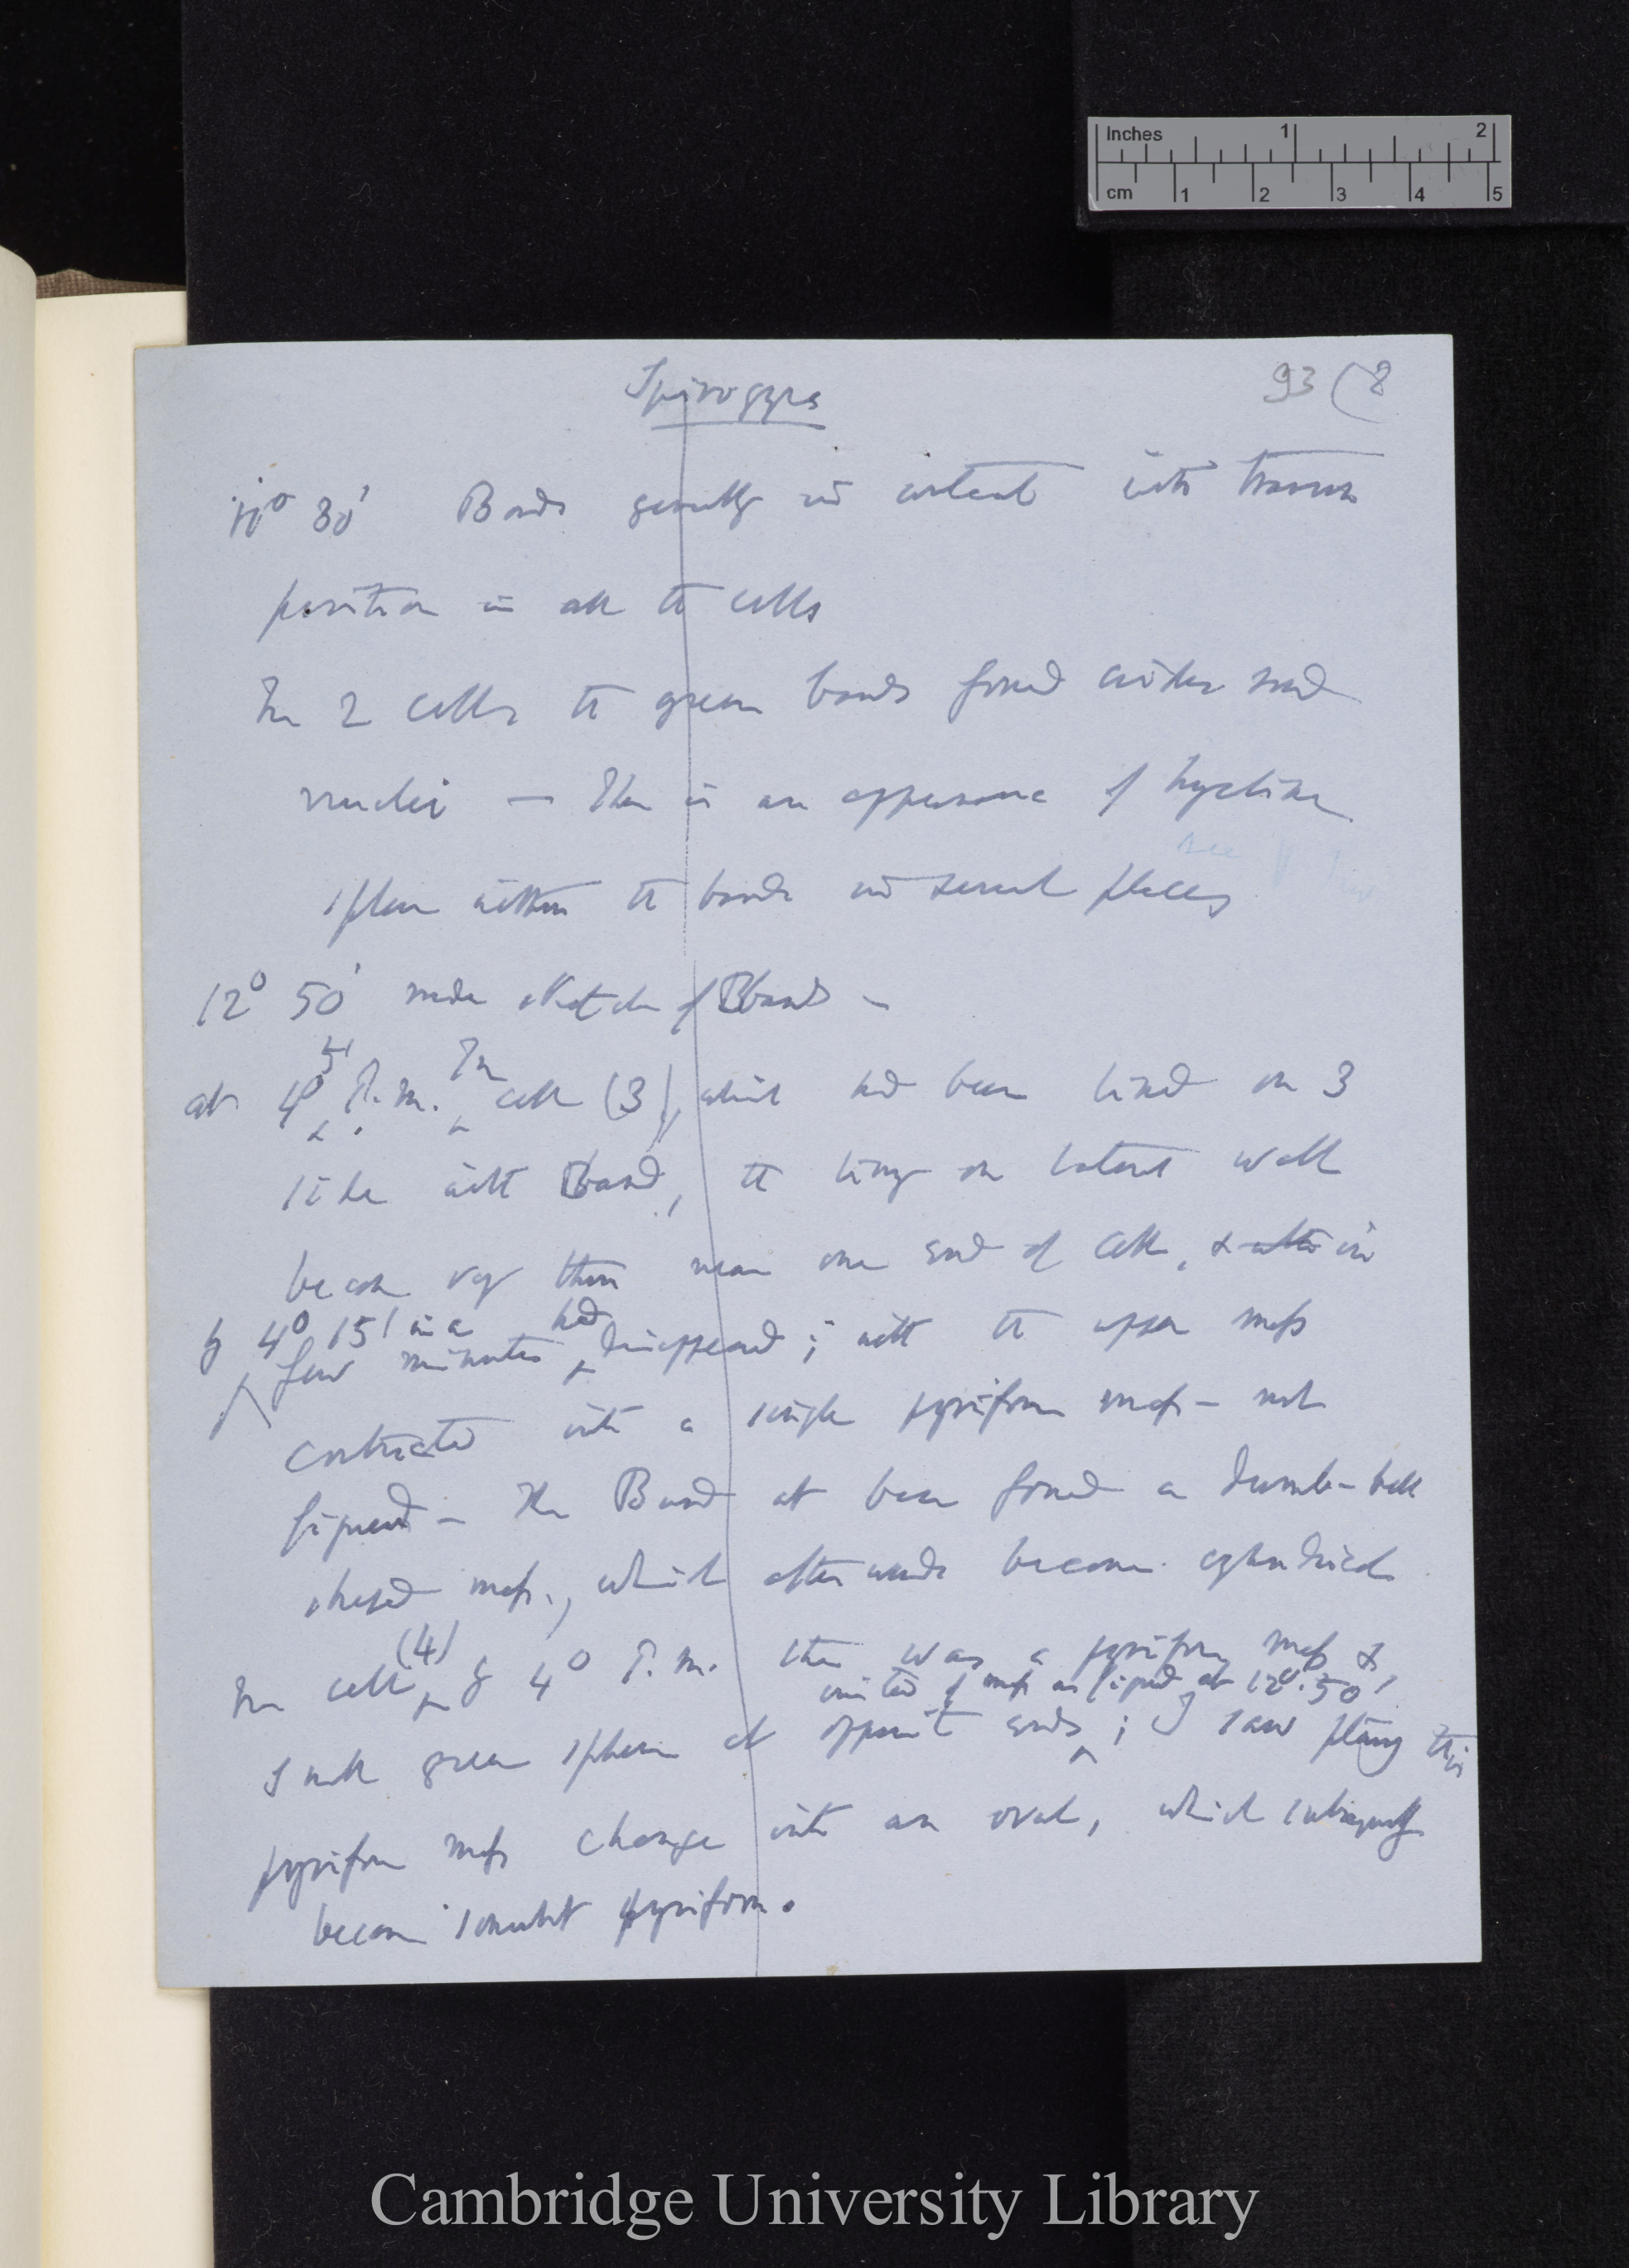 Inches 1 2
cm 1 2 3 4 5
Spirogyra
93 (8
11° 30' Bands generally contracted into transverse
position in all the cells
In 2 cells the green bands formed circles round
nuclei — There is an appearance of hyaline
see
spheres within the bands in several places
12° 50' made sketch of Bands —
5' In
at 4° P.m. cell (3), which had been lined on 3
side with Band, the lining on lateral wall
became very thin near one end of cell, & after in
by 4° 15' in a had
few minutes disappeared; with the upper mass
contracted into a single pyriform mass — not
figured — The Band at base formed a dumb-bell
shaped mass, which afterwards became cylindrical
(4)
In cell by 4° P.m. there was a pyriform mass &
united of mass as figured at 12°. 50'
small green sphere at opposite ends; I saw plainly this
pyriform mass change into an oval, which subsequently
became somewhat pyriform.
Cambridge University Library